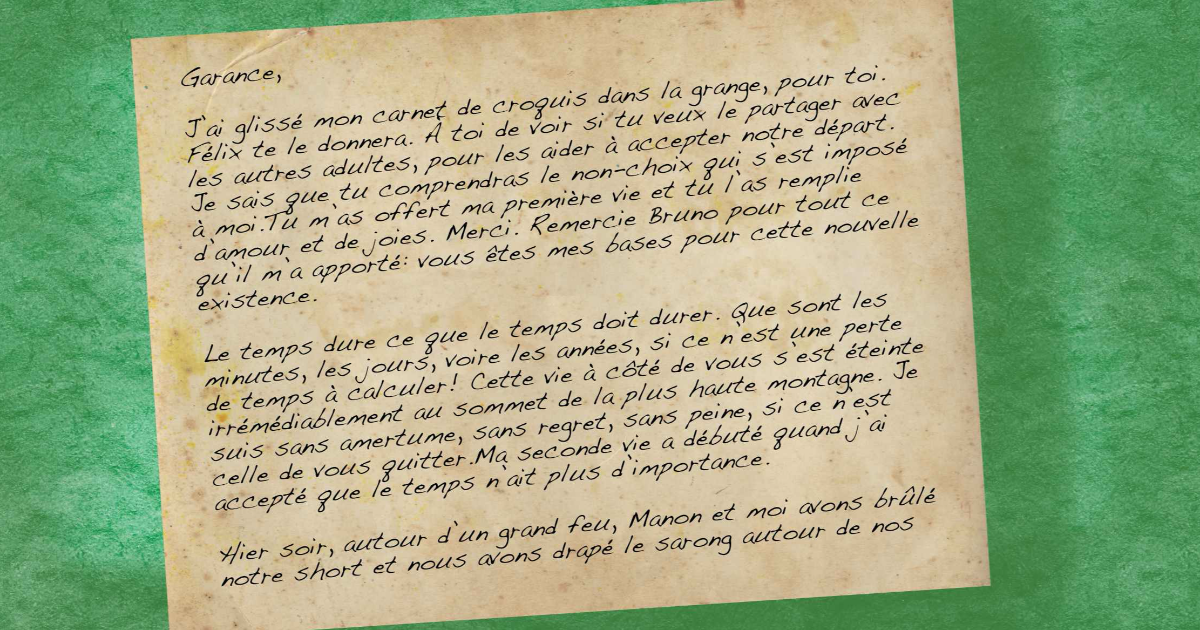 Garance,
J'ai glissé mon carnet de croquis dans la grange, pour toi.
Félix te le donnera. À toi de voir si tu veux le partager avec
les autres adultes, pour les aider à accepter notre départ.
Je sais que tu comprendras le non-choix qui s'est imposé
à moi.Tu m'as offert ma première vie et tu l'as remplie
d'amour et de joies. Merci. Remercie Bruno pour tout ce
qu'il m'a apporté: vous êtes mes bases pour cette nouvelle
existence.
Le temps dure ce que le temps doit durer. Que sont les
minutes, les jours, voire les années, si ce n'est une perte
de temps à calculer! Cette vie à côté de vous s'est éteinte
irrémédiablement au sommet de la plus haute montagne. Je
suis sans amertume, sans regret, sans peine, si ce n'est
celle de vous quitter.Ma seconde vie a débuté quand j'ai
accepté que le temps n'ait plus d'importance.
Hier soir, autour d'un grand feu, Manon et moi avons brûlé
notre short et nous avons drapé le sarong autour de nos